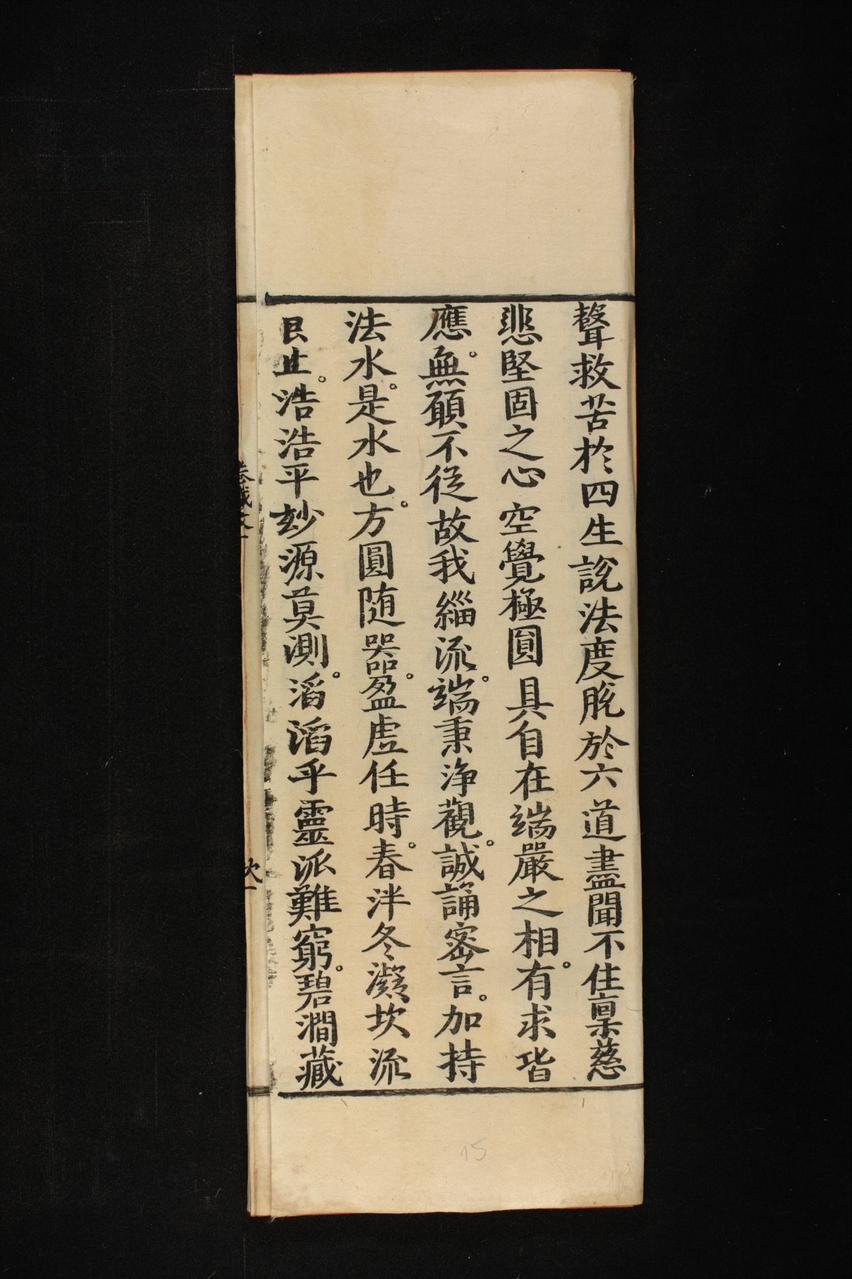 聲救苦於四生說法度脫於六道盡聞不住稟慈
悲堅固之心空覺極圓具自在端嚴之相。有求皆
應。無願不從故我緇流。端秉淨觀。誠誦密言。加持
法水。是水也。方圓随器。盈虛任時。春泮冬凝坎流
艮止。浩浩平玅源莫測。滔滔乎靈派難窮。碧澗藏
15